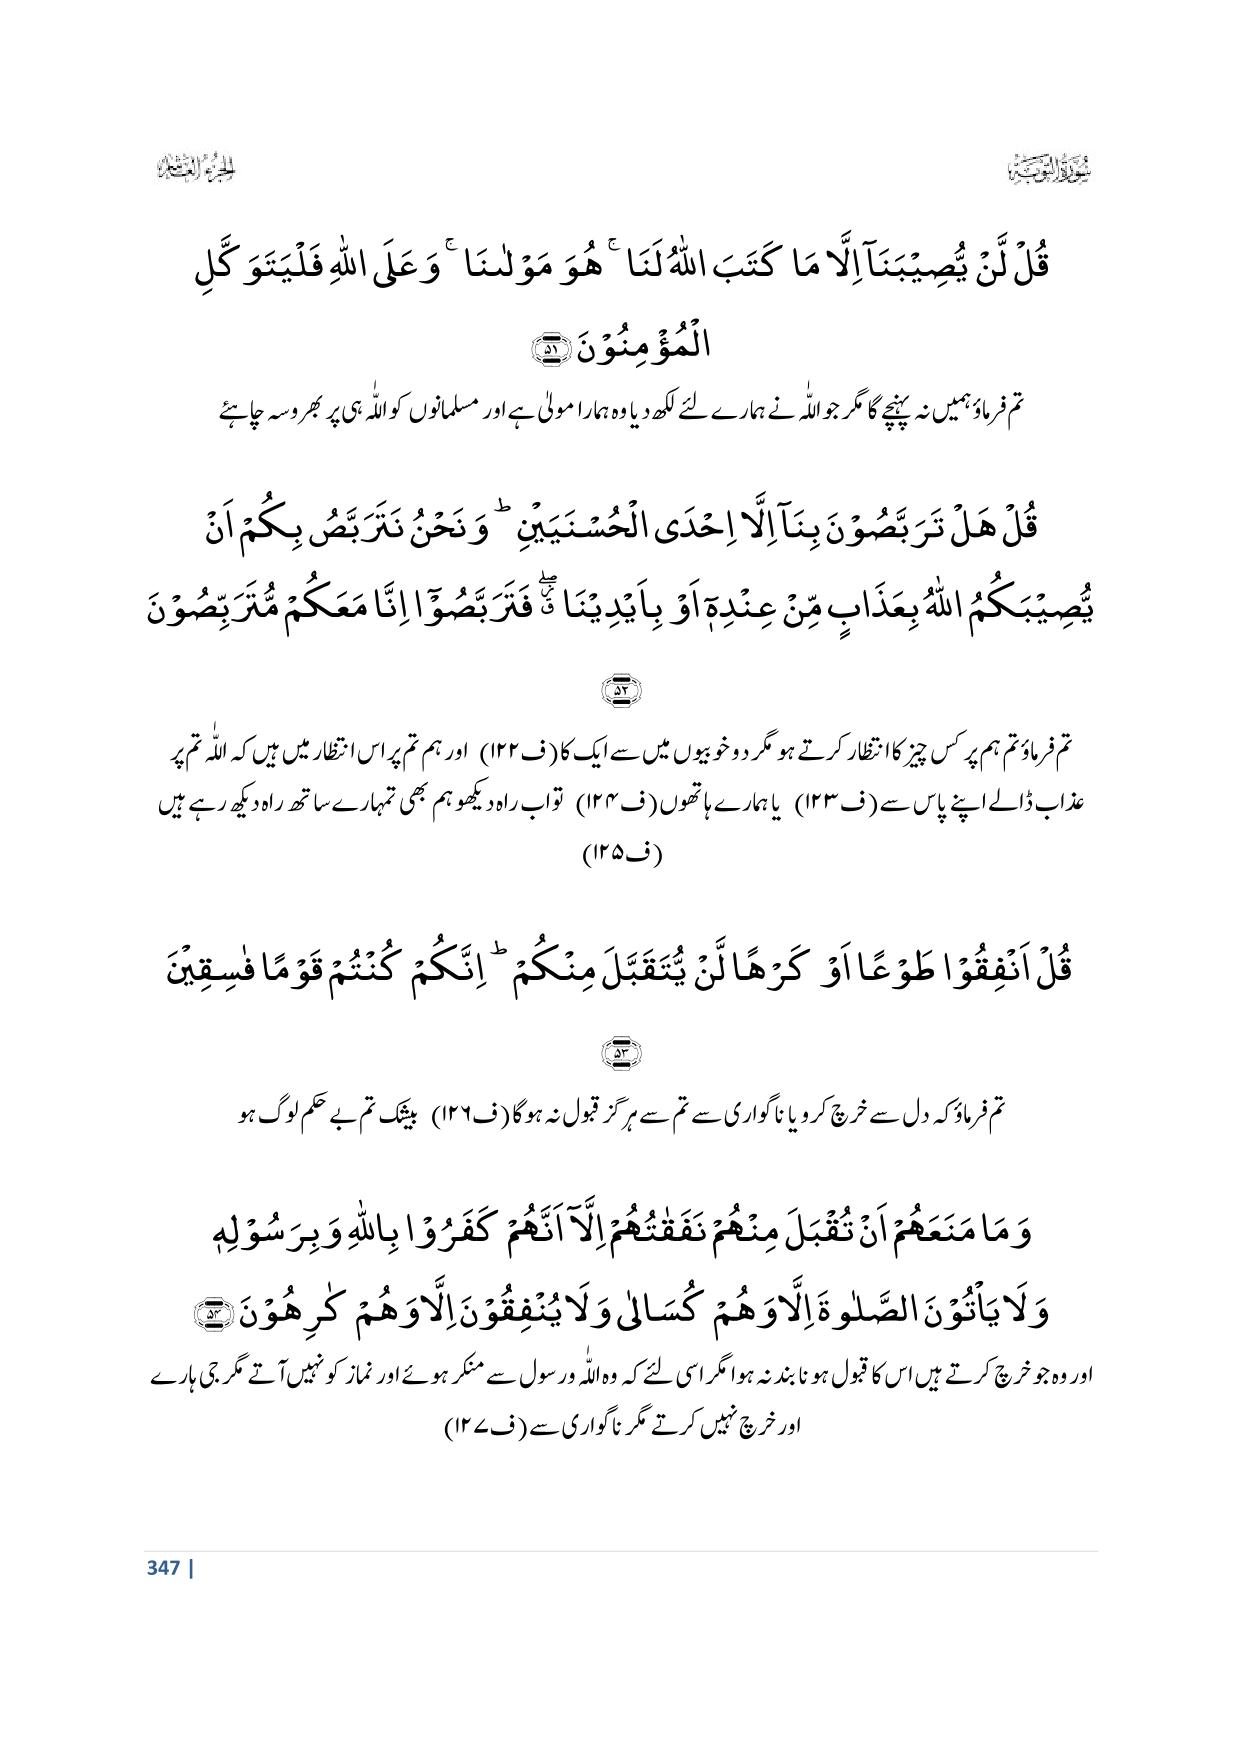 سُوْرَةُ التَّوْبَة الجزء العاشر
قُلْ لَّنْ یُّصِیْبَنَاۤ اِلَّا مَا كَتَبَ اللّٰهُ لَنَا ۚ هُوَ مَوْلٰىنَا ۚ وَ عَلَى اللّٰهِ فَلْیَتَوَكَّلِ
الْمُؤْمِنُوْنَ ﴿۵۱﴾
تم فرماؤ ہمیں نہ پہنچے گا مگر جو اللّٰہ نے ہمارے لئے لکھ دیا وہ ہمارا مولیٰ ہے اور مسلمانوں کو اللّٰہ ہی پر بھروسہ چاہئے
قُلْ هَلْ تَرَبَّصُوْنَ بِنَاۤ اِلَّاۤ اِحْدَى الْحُسْنَیَیْنِ ؕ وَ نَحْنُ نَتَرَبَّصُ بِكُمْ اَنْ
یُّصِیْبَكُمُ اللّٰهُ بِعَذَابٍ مِّنْ عِنْدِهٖۤ اَوْ بِاَیْدِیْنَا ۖ٘ فَتَرَبَّصُوْۤا اِنَّا مَعَكُمْ مُّتَرَبِّصُوْنَ
﴿۵۲﴾
تم فرماؤ تم ہم پر کس چیز کا انتظار کرتے ہو مگر دو خوبیوں میں سے ایک کا (ف۱۲۲) اور ہم تم پر اس انتظار میں ہیں کہ اللّٰہ تم پر
عذاب ڈالے اپنے پاس سے (ف۱۲۳) یا ہمارے ہاتھوں (ف۱۲۴) تو اب راہ دیکھو ہم بھی تمہارے ساتھ راہ دیکھ رہے ہیں
(ف۱۲۵)
قُلْ اَنْفِقُوْا طَوْعًا اَوْ كَرْهًا لَّنْ یُّتَقَبَّلَ مِنْكُمْ ؕ اِنَّكُمْ كُنْتُمْ قَوْمًا فٰسِقِیْنَ
﴿۵۳﴾
تم فرماؤ کہ دل سے خرچ کرو یا ناگواری سے تم سے ہرگز قبول نہ ہوگا (ف۱۲۶) بیشک تم بے حکم لوگ ہو
وَ مَا مَنَعَهُمْ اَنْ تُقْبَلَ مِنْهُمْ نَفَقٰتُهُمْ اِلَّاۤ اَنَّهُمْ كَفَرُوْا بِاللّٰهِ وَ بِرَسُوْلِهٖ
وَ لَا یَاْتُوْنَ الصَّلٰوةَ اِلَّا وَ هُمْ كُسَالٰى وَ لَا یُنْفِقُوْنَ اِلَّا وَ هُمْ كٰرِهُوْنَ ﴿۵۴﴾
اور وہ جو خرچ کرتے ہیں اس کا قبول ہونا بند نہ ہوا مگر اسی لئے کہ وہ اللّٰہ و رسول سے منکر ہوئے اور نماز کو نہیں آتے مگر جی ہارے
اور خرچ نہیں کرتے مگر ناگواری سے (ف۱۲۷)
347 |